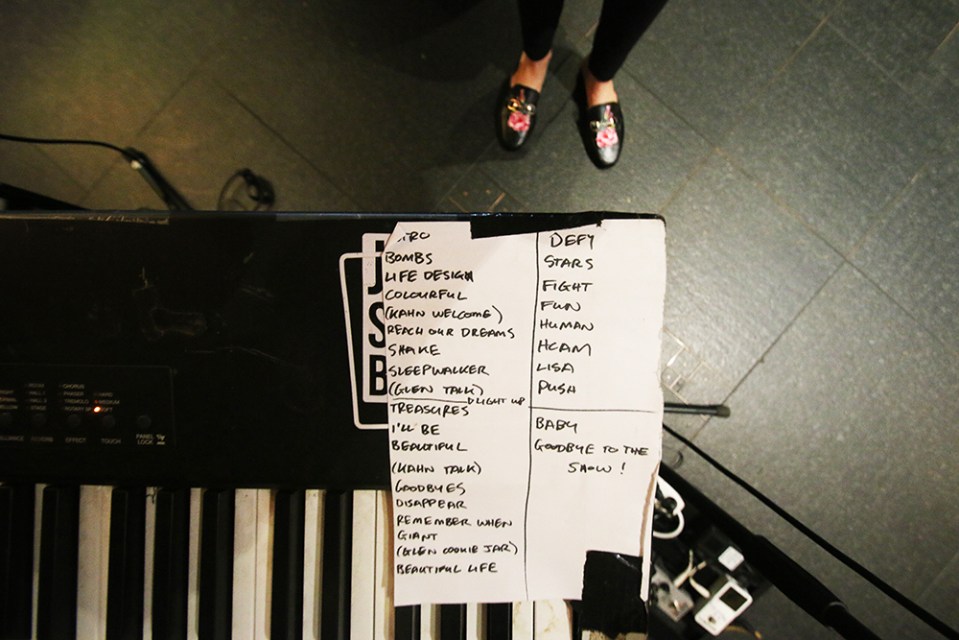 BOMBS
LIFE DESIGN
COLOURFUL
(KAHN WELCOME)
REACH OUR DREAMS
SHAKE
SLEEPWALKER
(GLEN TALK)
LIGHT UP
TREASURES
I'LL BE
BEAUTIFUL
(KAHN TALK)
GOODBYES
DISAPPEAR
REMEMBER WHEN
GIANT
(GLEN COOKIE JAR)
BEAUTIFUL LIFE
DEFY
STARS
FIGHT
FUN
HUMAN
HCAM
LISA
PUSH
BABY
GOODBYE TO THE
SHOW !
J
S
B
CHORUS
EFFECT
TOUCH
PANEL
LOCK